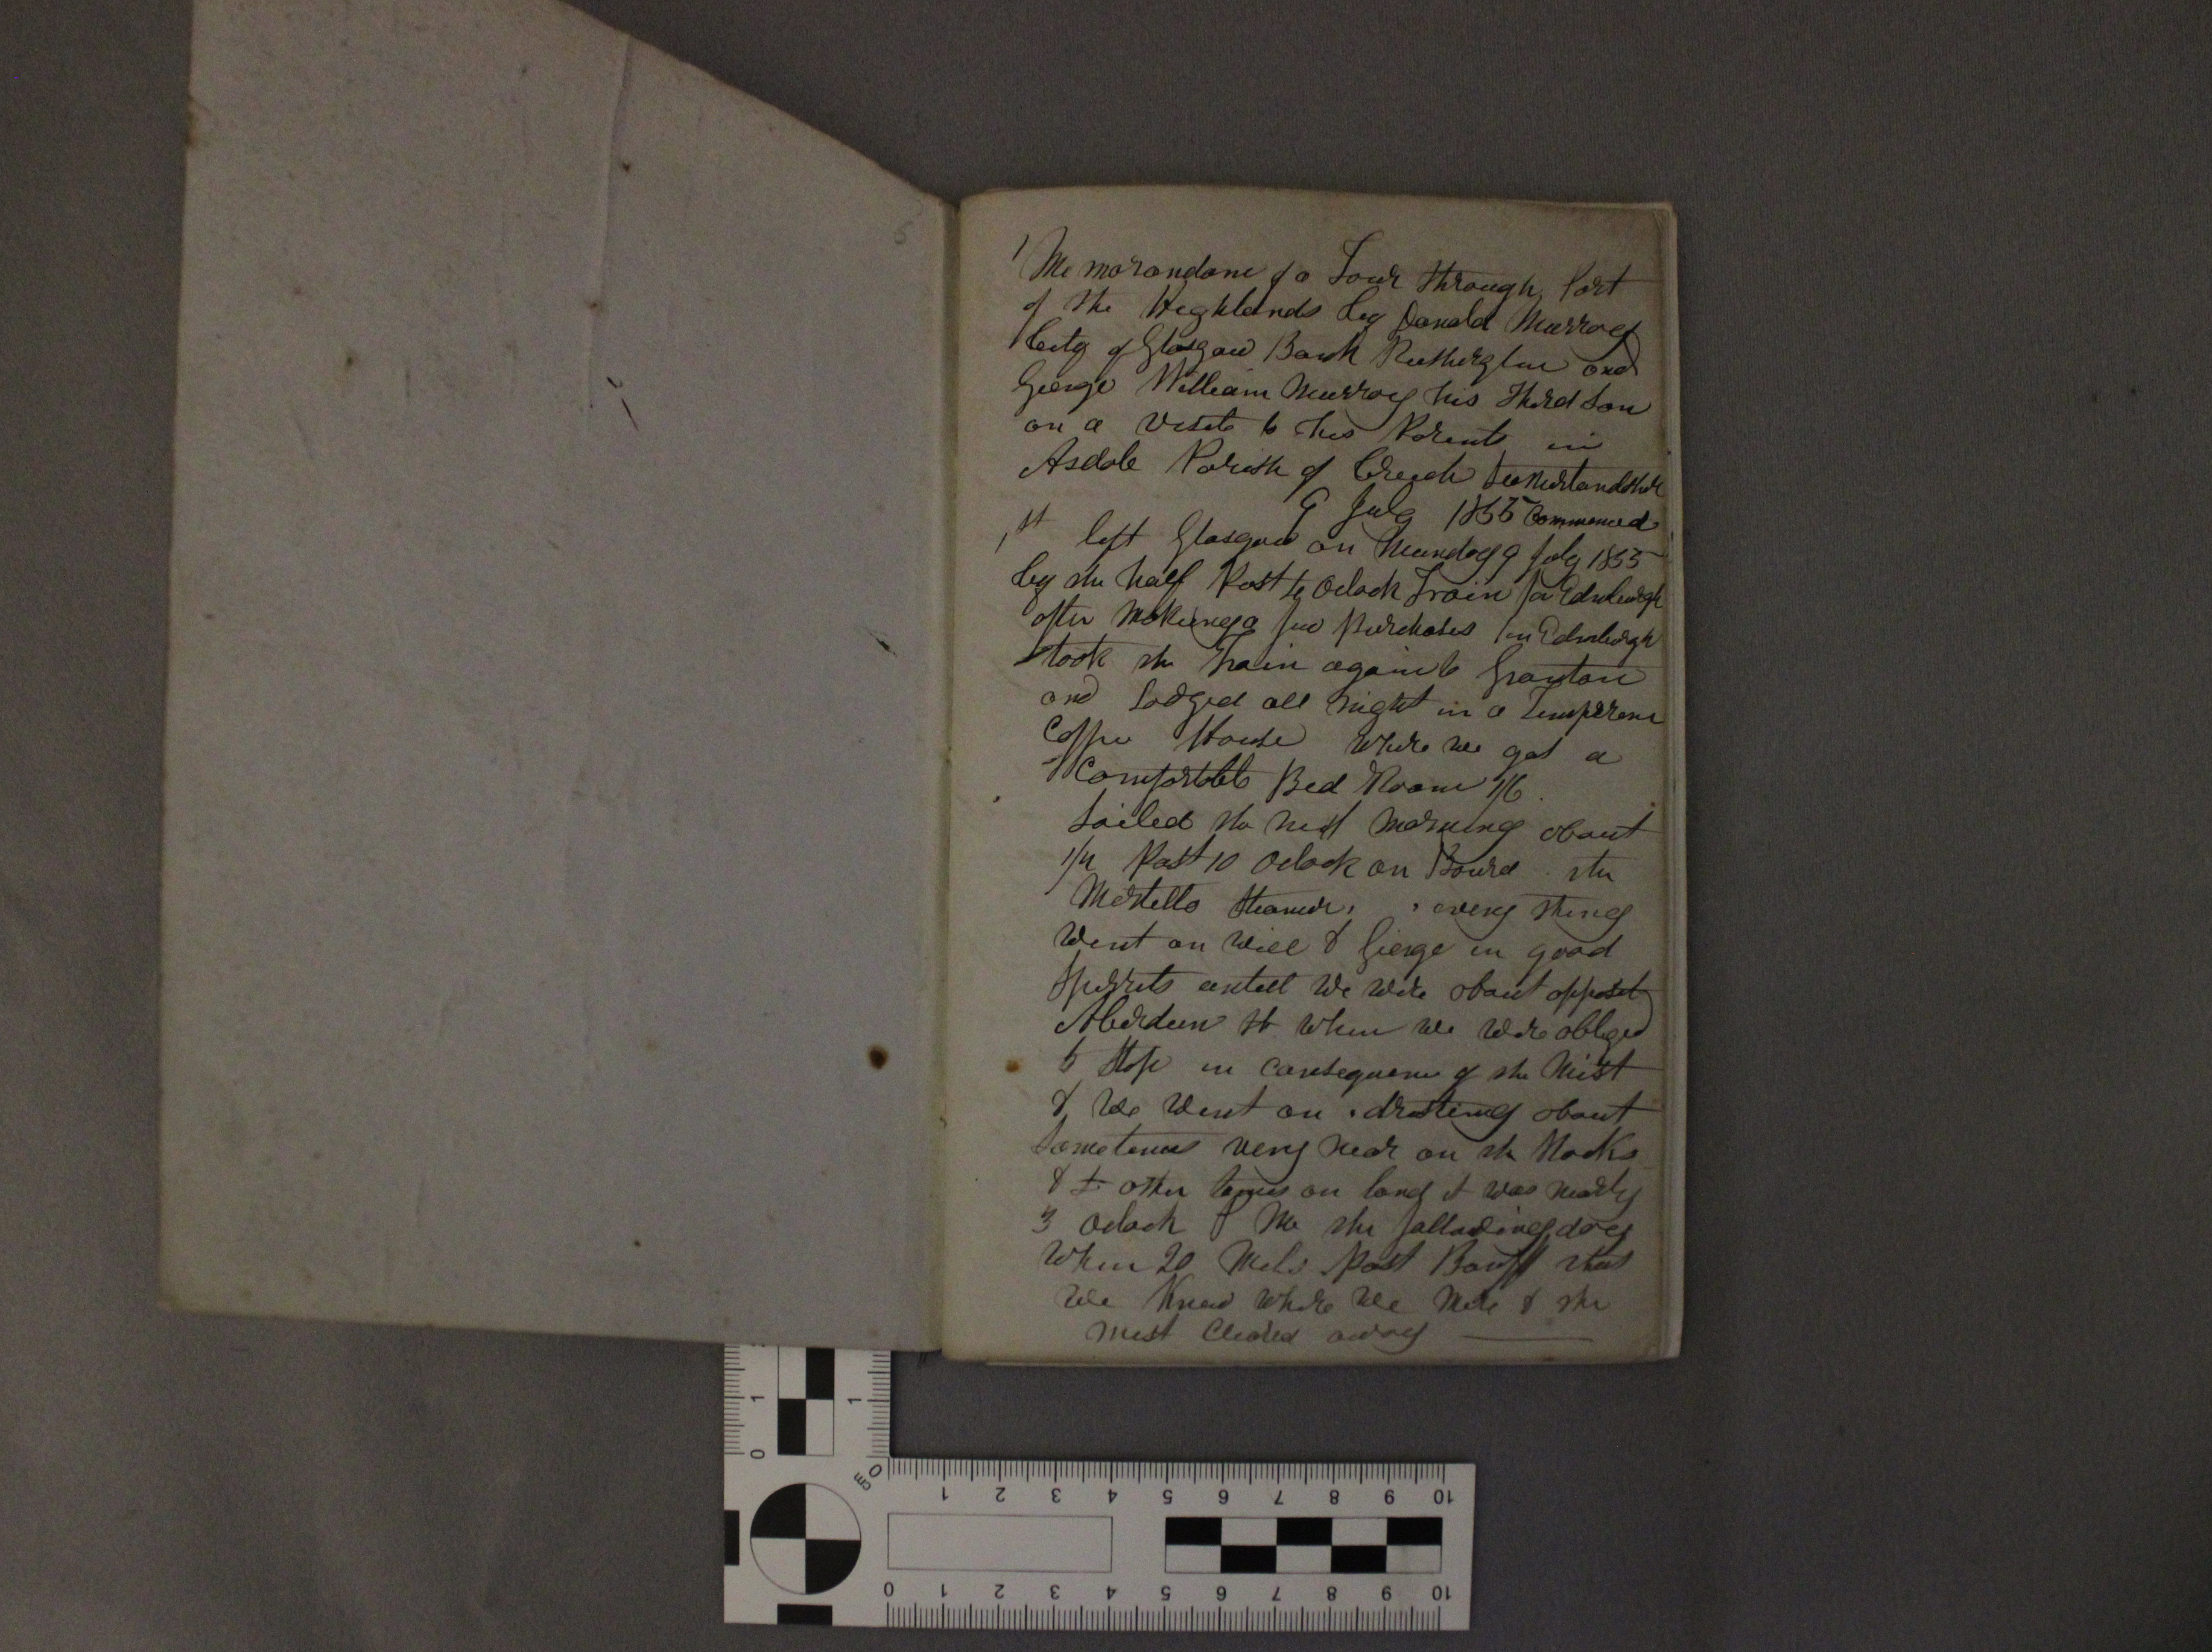 5
1 Memorandom of a Tour through Part
of the Highlands by Donald Murray
City of Glasgow Bank Rutherglen and
George William Murray his Third Son
on a visit to his Parents in
Asdale Parish of Creech Sutherlandshire
9 July 1855 Commenced
1st left Glasgow on Munday 9 July 1855
by the half Past Oclock Train for Edinburgh
after Making a few Purchases in Edinburgh
took the Train again to Granton
and Lodged all night in a Temperance
Coffee House where we got a
Comfortable Bed Room 1/6.
Sailed the next morning about
1/4 Past 10 Oclock on Board the
Martello Steamer, every thing
Went on well & George in good
Spirrits untill We were about opposet
Aberdeen St when we were obliged
to Stop in Consequence of the Mist
& We Went on drifting about
Sometimes very near on the Rocks
& other times on land it was nearly
3 Oclock P M the following day
When 20 Mils Past Banff that
we Knew where we were & the
mist Cleared away
0 1
1
50
1 2 3 4 5 6 7 8 9 10
0 1 2 3 4 5 6 7 8 9 10